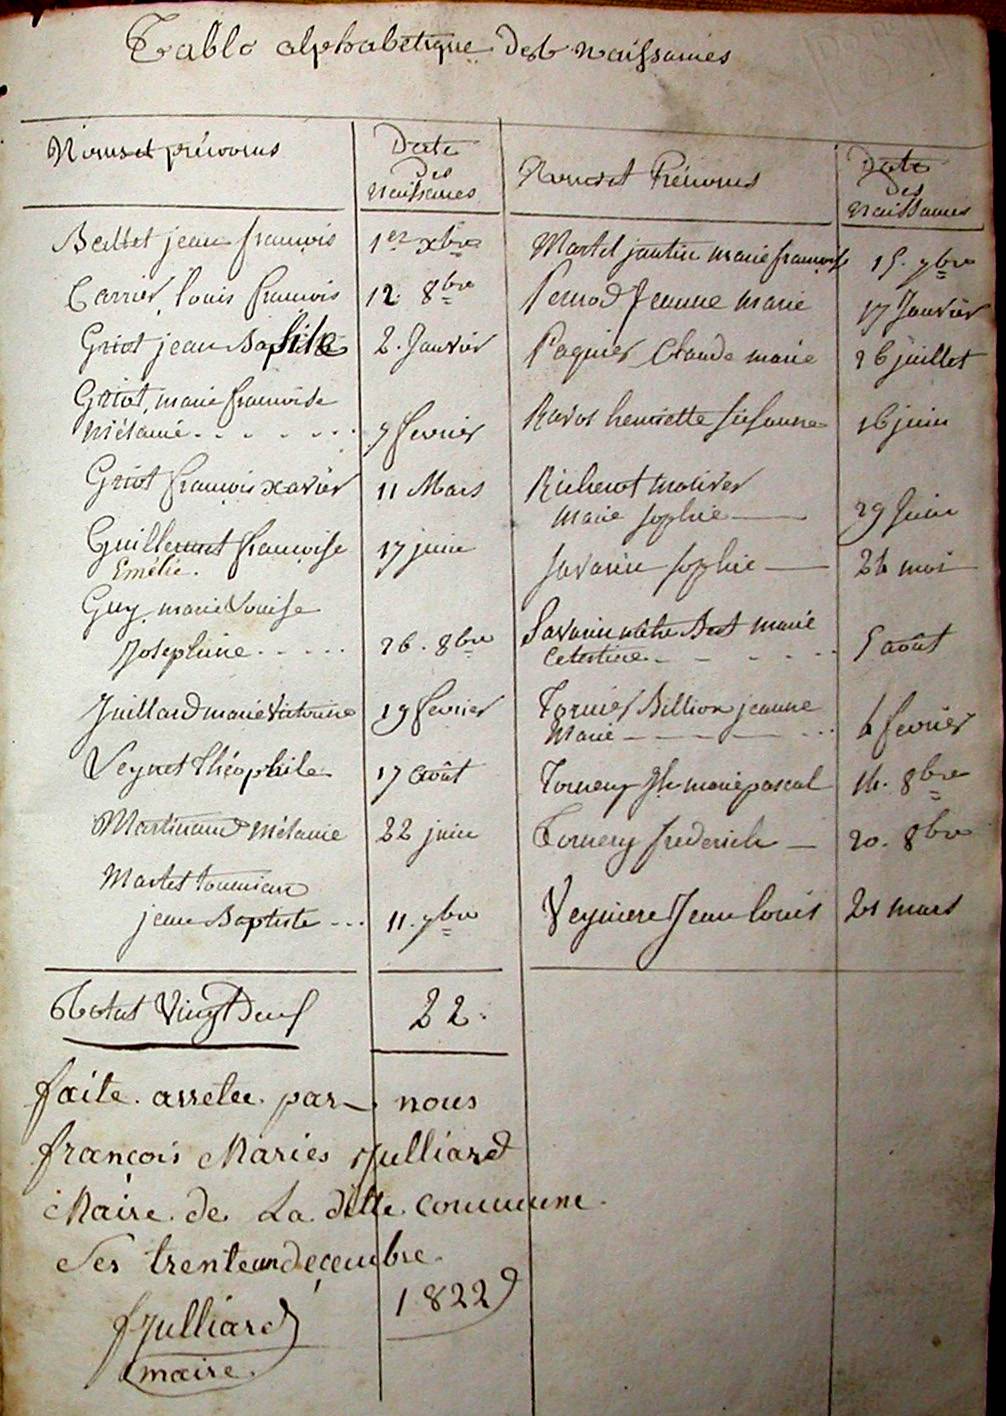 Table alphabétique des naissances
Noms et prénoms
Date
des
naissances
Ballet jean françois 1er xbre
Carrier louis françois 12. 8bre
Griot jean Baptiste 2. Janvier
Griot, marie françoise
mélanie 7 fevrier
Griot françois xavier 11 Mars
Guillermet françoise 17 juin
Emélie.
Guy marie Louise
Josephine 26. 8bre
Juillard marie victorine 19 fevrier
Veyret théophile 17 août
Martinand mélanie 22 juin
Martel
jean Baptiste 11. 7bre
Noms et Prénoms
Date
des
naissances
Martel jantin marie françoise 15. 7bre
Perrod Jeanne marie 17 Janvier
Paquier Claude marie 26 juillet
Ravos henriette susanne 16 juin
Richerot
marie sophie 29 Juin
Savarin sophie 26 mai
Savarin Bat marie
Celestine 5 août
Tornier Billion jeanne
Marie 6 fevrier
Tornery Jh marie pascal 14. 8bre
Tornery frederich 20. 8bre
Veyriere Jean louis 21 mars
Total Vingt Deux 22.
faite. arretee. par nous
françois Maries Julliard
Maire. de La ditte commune.
Ses trente un decembre
1822
fJulliard
maire.